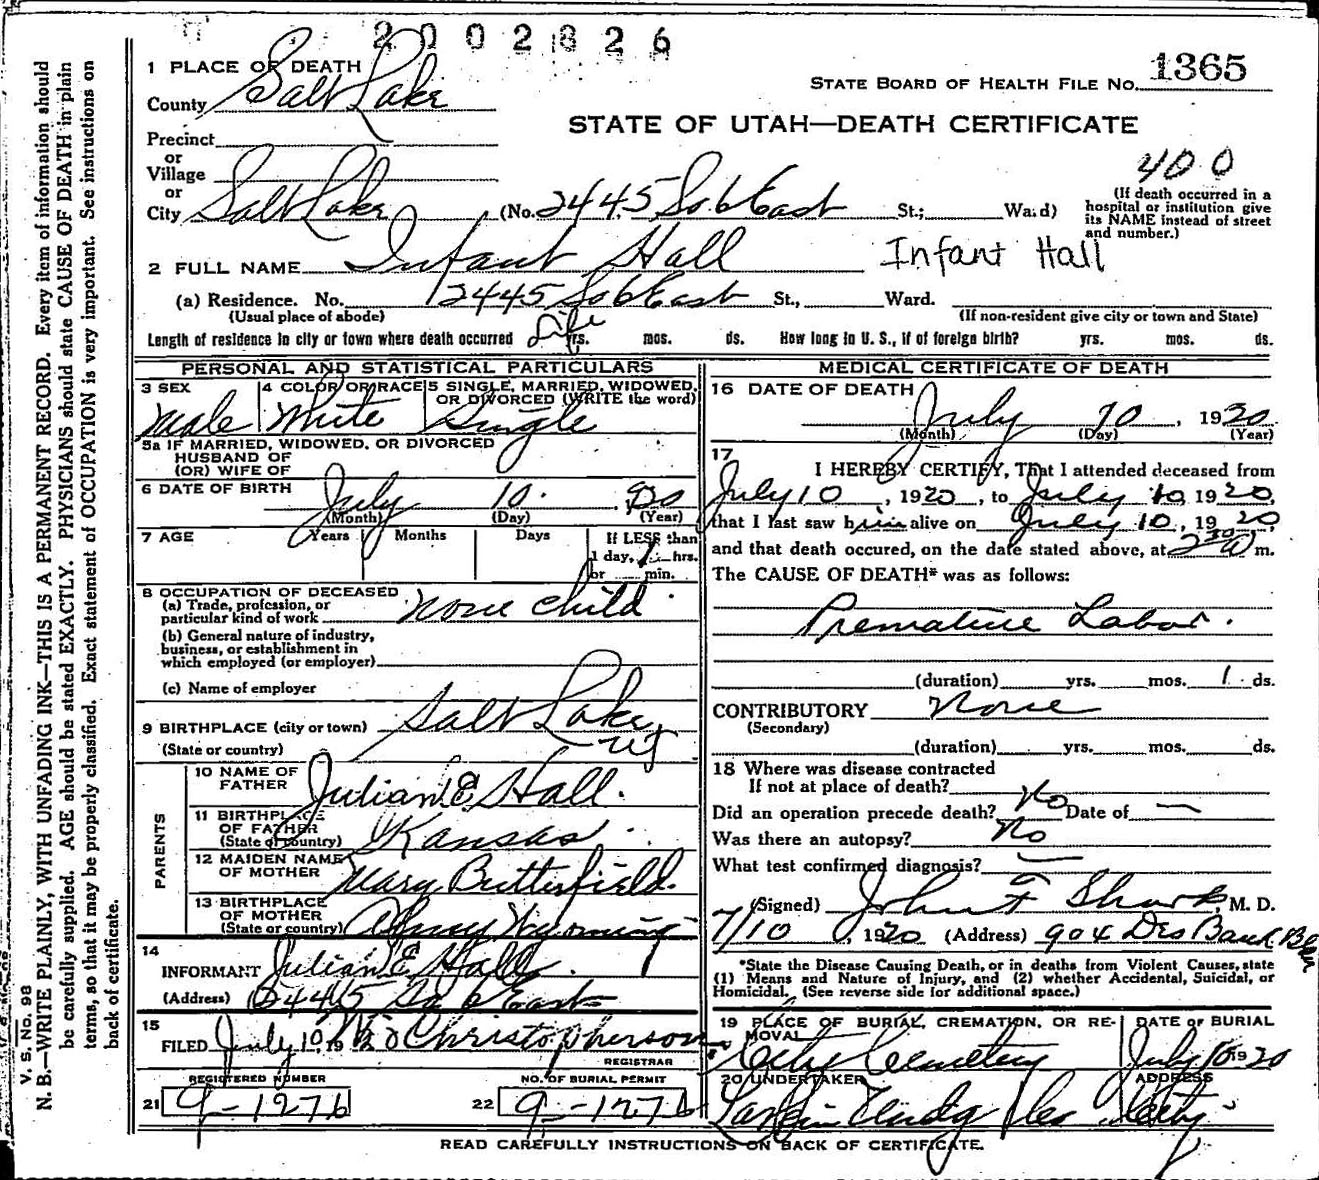 2002826
1 PLACE OF DEATH
STATE BOARD OF HEALTH FILE No. 1365
County Salt Lake
STATE OF UTAH—DEATH CERTIFICATE
Precinct
or
Village
or
City Salt Lake (No. 2445 So. 6 East St.; Ward)
400
(If death occurred in a hospital or institution give its NAME instead of street and number.)
2 FULL NAME Infant Hall Infant Hall
(a) Residence. No. 2445 So 6 East St., Ward.
(Usual place of abode) (If non-resident give city or town and State)
Length of residence in city or town where death occurred Life yrs. mos. ds. How long in U. S., if of foreign birth? yrs. mos. ds.
PERSONAL AND STATISTICAL PARTICULARS
3 SEX 4 COLOR OR RACE 5 SINGLE, MARRIED, WIDOWED, OR DIVORCED (WRITE the word)
Male White Single
5a IF MARRIED, WIDOWED, OR DIVORCED
HUSBAND OF
(OR) WIFE OF
6 DATE OF BIRTH July 10.
(Month) (Day) (Year)
7 AGE Years Months Days If LESS than
1 day, 1 hrs.
or min.
8 OCCUPATION OF DECEASED
(a) Trade, profession, or
particular kind of work None child
(b) General nature of industry,
business, or establishment in
which employed (or employer)
(c) Name of employer
9 BIRTHPLACE (city or town) Salt Lake
(State or country) UT
PARENTS
10 NAME OF
FATHER Julian E. Hall.
11 BIRTHPLACE
OF FATHER
(State or country) Kansas
12 MAIDEN NAME
OF MOTHER Mary Butterfield.
13 BIRTHPLACE
OF MOTHER
(State or country) Wyoming
14
INFORMANT Julian E. Hall
(Address) 2445 So 6 East
15
FILED July 10, 1920 Christopherson
REGISTRAR
REGISTERED NUMBER NO. OF BURIAL PERMIT
21 9-1276 22 9-1276
MEDICAL CERTIFICATE OF DEATH
16 DATE OF DEATH July 10, 1920
(Month) (Day) (Year)
17
I HEREBY CERTIFY, That I attended deceased from
July 10, 1920, to July 10, 1920,
that I last saw him alive on July 10, 1920
and that death occured, on the date stated above, at 2 30 a m.
The CAUSE OF DEATH* was as follows:
Premature Labor.
(duration) yrs. mos. 1 ds.
CONTRIBUTORY None
(Secondary)
(duration) yrs. mos. ds.
18 Where was disease contracted
If not at place of death?
Did an operation precede death? No Date of —
Was there an autopsy? No
What test confirmed diagnosis? —
(Signed) John F Sharp, M. D.
7/10, 1920 (Address) 904 Des Bank
*State the Disease Causing Death, or in deaths from Violent Causes, state
(1) Means and Nature of Injury, and (2) whether Accidental, Suicidal, or
Homicidal. (See reverse side for additional space.)
19 PLACE OF BURIAL, CREMATION, OR RE-
MOVAL DATE OF BURIAL
City Cemetery July 10 1920
20 UNDERTAKER ADDRESS
Larkin Undg Co City
READ CAREFULLY INSTRUCTIONS ON BACK OF CERTIFICATE.
V. S. No. 98
N. B.—WRITE PLAINLY, WITH UNFADING INK—THIS IS A PERMANENT RECORD. Every item of information should
be carefully supplied. AGE should be stated EXACTLY. PHYSICIANS should state CAUSE OF DEATH in plain
terms, so that it may be properly classified. Exact statement of OCCUPATION is very important. See instructions on
back of certificate.